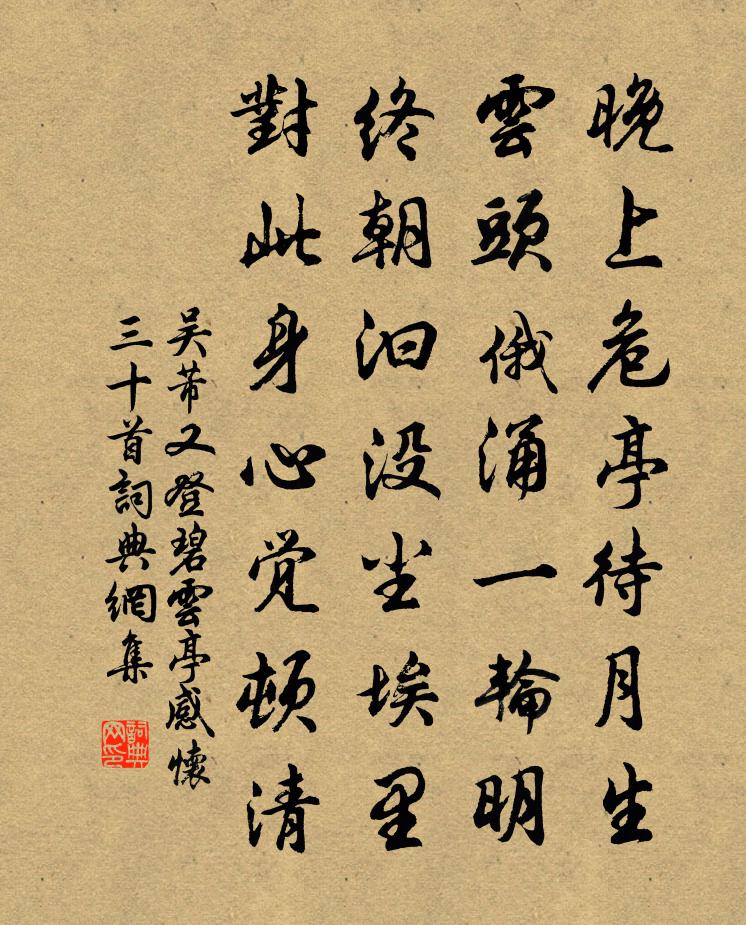 晚上危亭待月生
雲頭俄涌一輪明
終朝汩没尘埃里
對此身心觉頓清
吴芾又登碧雲亭感懷
三十首詞典網集
詞典网印